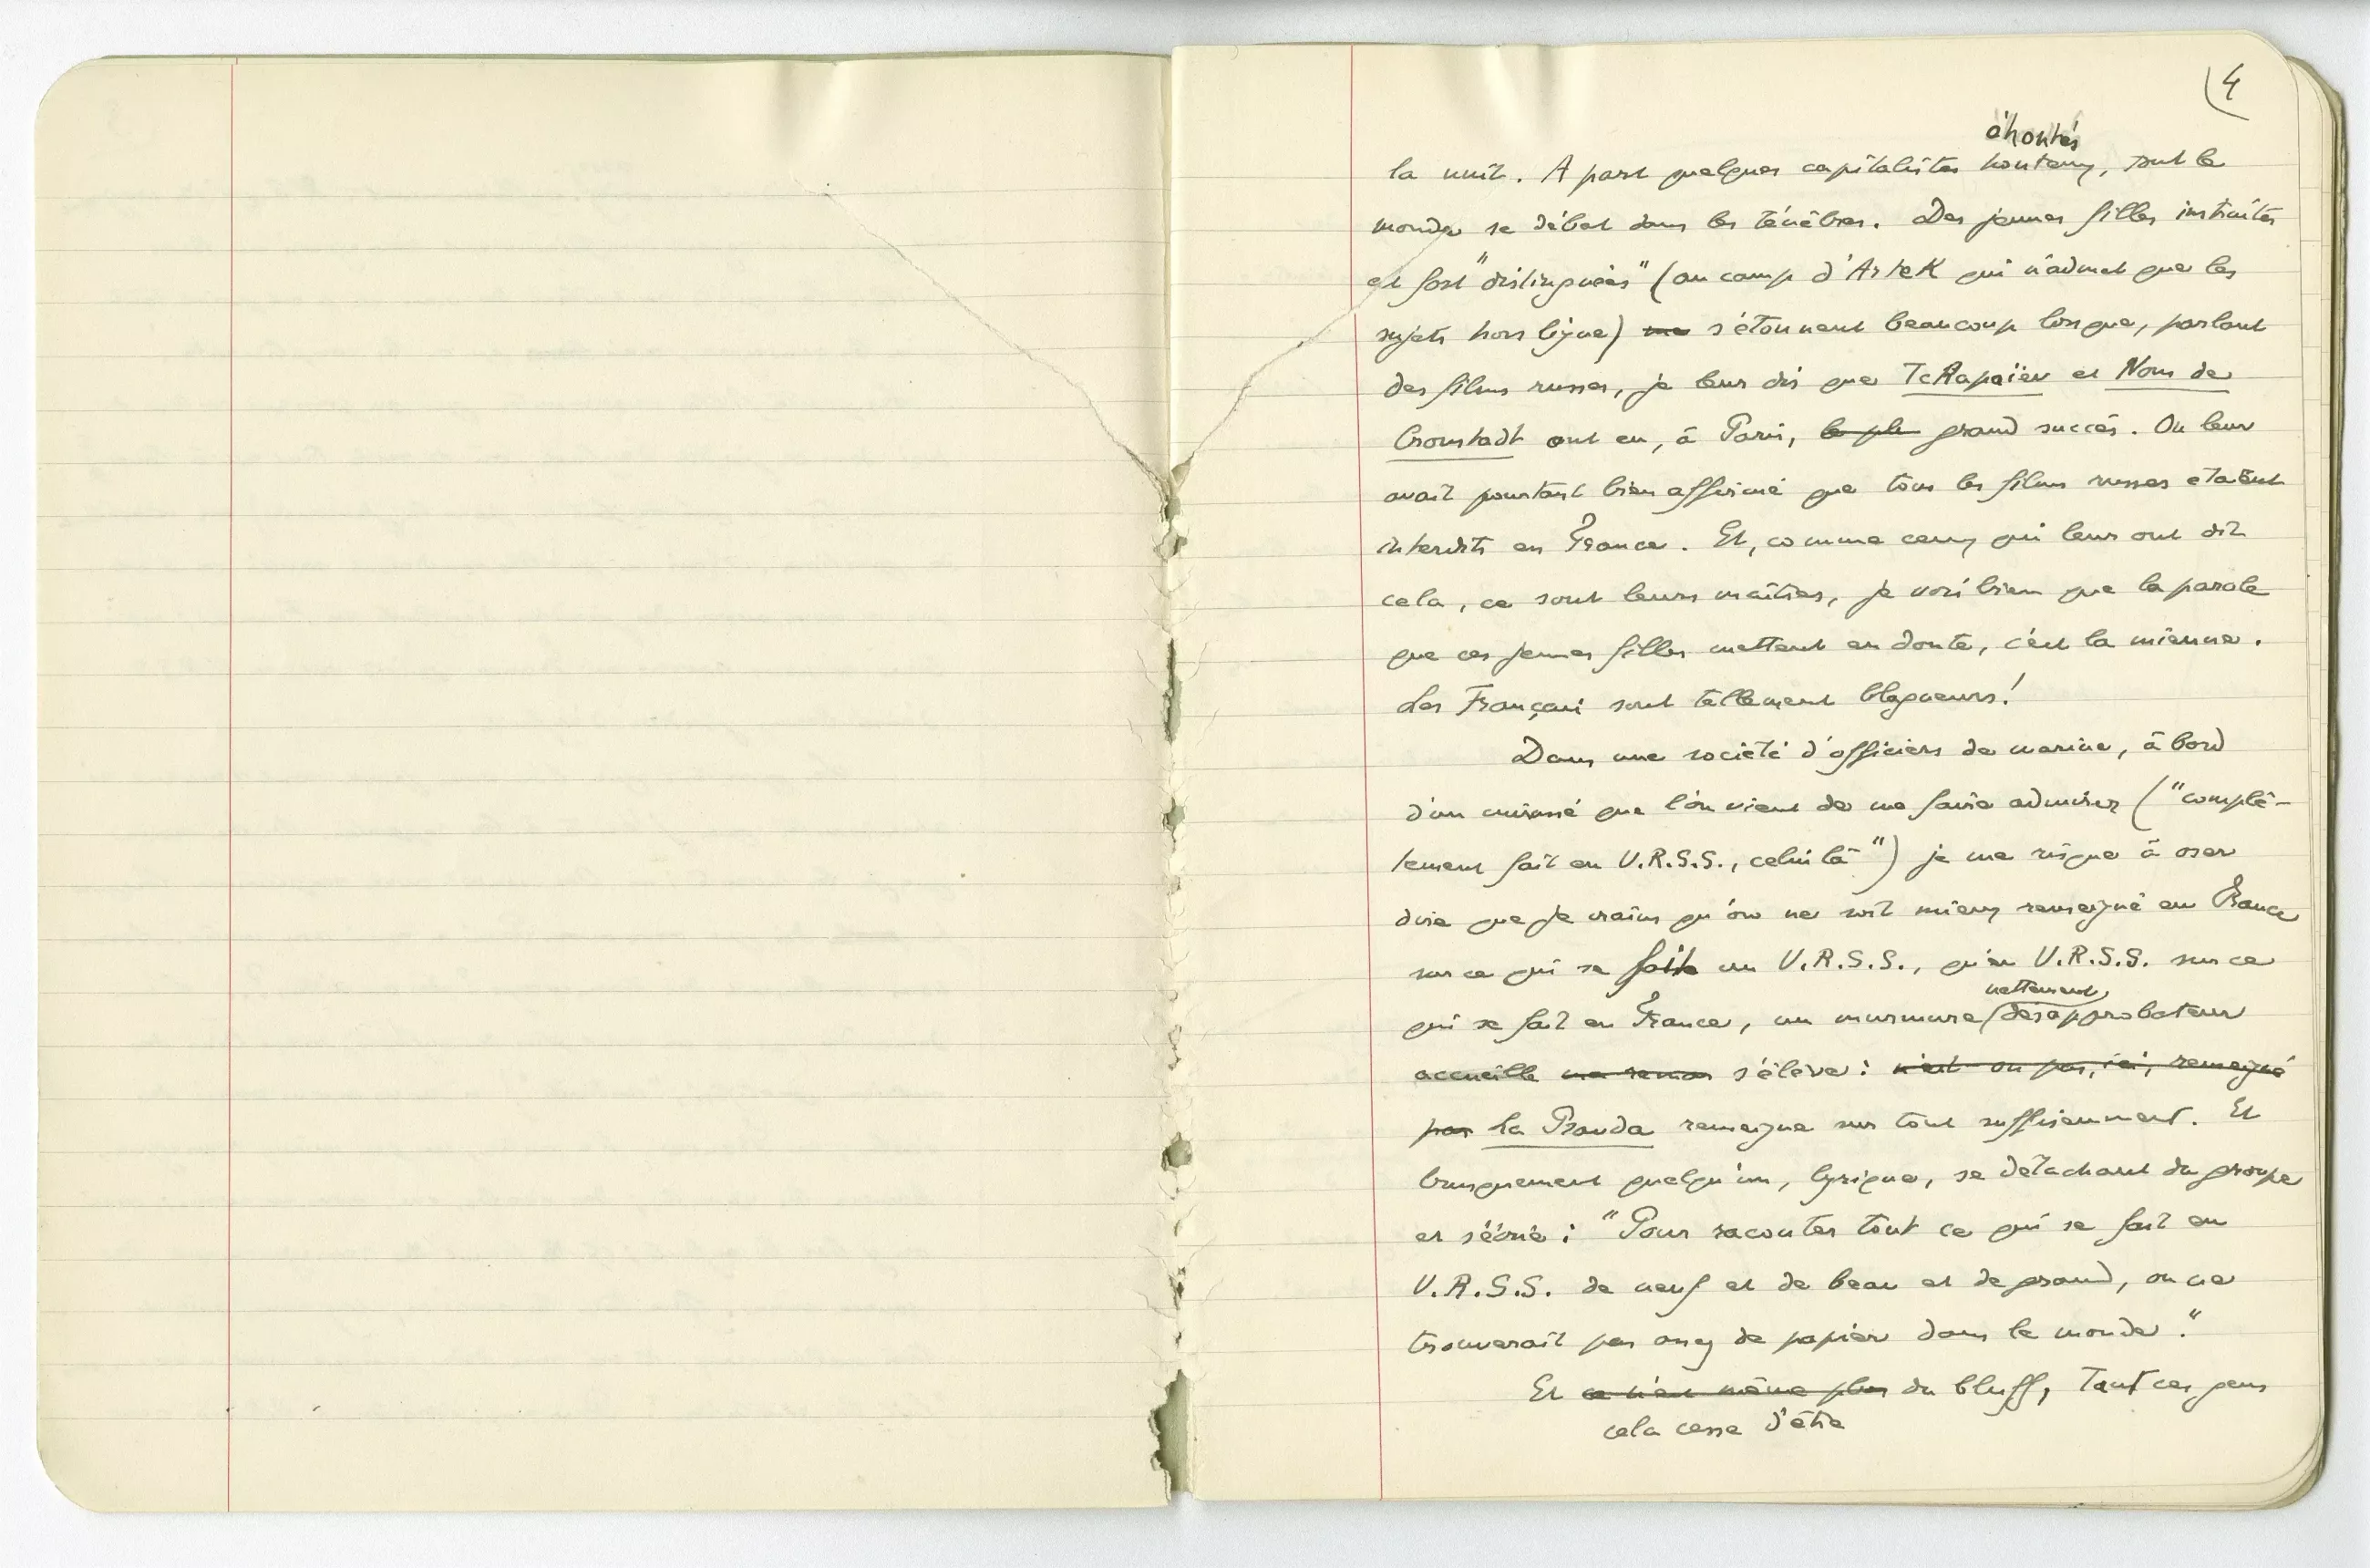 4
éhontés
la nuit. A part quelques capitalistes honteux, tout le
monde se débat dans les ténèbres. Des jeunes filles instruites
et fort "distinguées" (au camp d'Artek qui n'admet que les
sujets hors ligne) me s'étonnent beaucoup lorsque, parlant
des films russes, je leur dis que Tchapaïev et Nous de
Cronstadt ont eu, à Paris, le plu grand succès. On leur
avait pourtant bien affirmé que tous les films russes étaient
interdits en France. Et, comme ceux qui leur ont dit
cela, ce sont leurs maîtres, je vois bien que la parole
que ces jeunes filles mettent en doute, c'est la mienne.
Les Français sont tellement blagueurs!
Dans une société d'officiers de marine, à bord
d'un cuirassé que l'on vient de me faire admirer ("complè-
tement fait en U.R.S.S., celui là") je me risque à oser
dire que je crains qu'on ne soit mieux renseigné en France
sur ce qui se fait en U.R.S.S., qu'en U.R.S.S. sur ce
nettement
qui se fait en France, un murmure désapprobateur
accueille s'élève : n'est on pas, ici, renseigné
par La Pravda renseigne sur tout suffisamment. Et
brusquement quelqu'un, lyrique, se détachant du groupe
et s'écrie : "Pour raconter tout ce qui se fait en
U.R.S.S. de neuf et de beau et de grand, on ne
trouverait pas assez de papier dans le monde."
Et ce n'est même plus du bluff, tant ces gens
cela cesse d'être